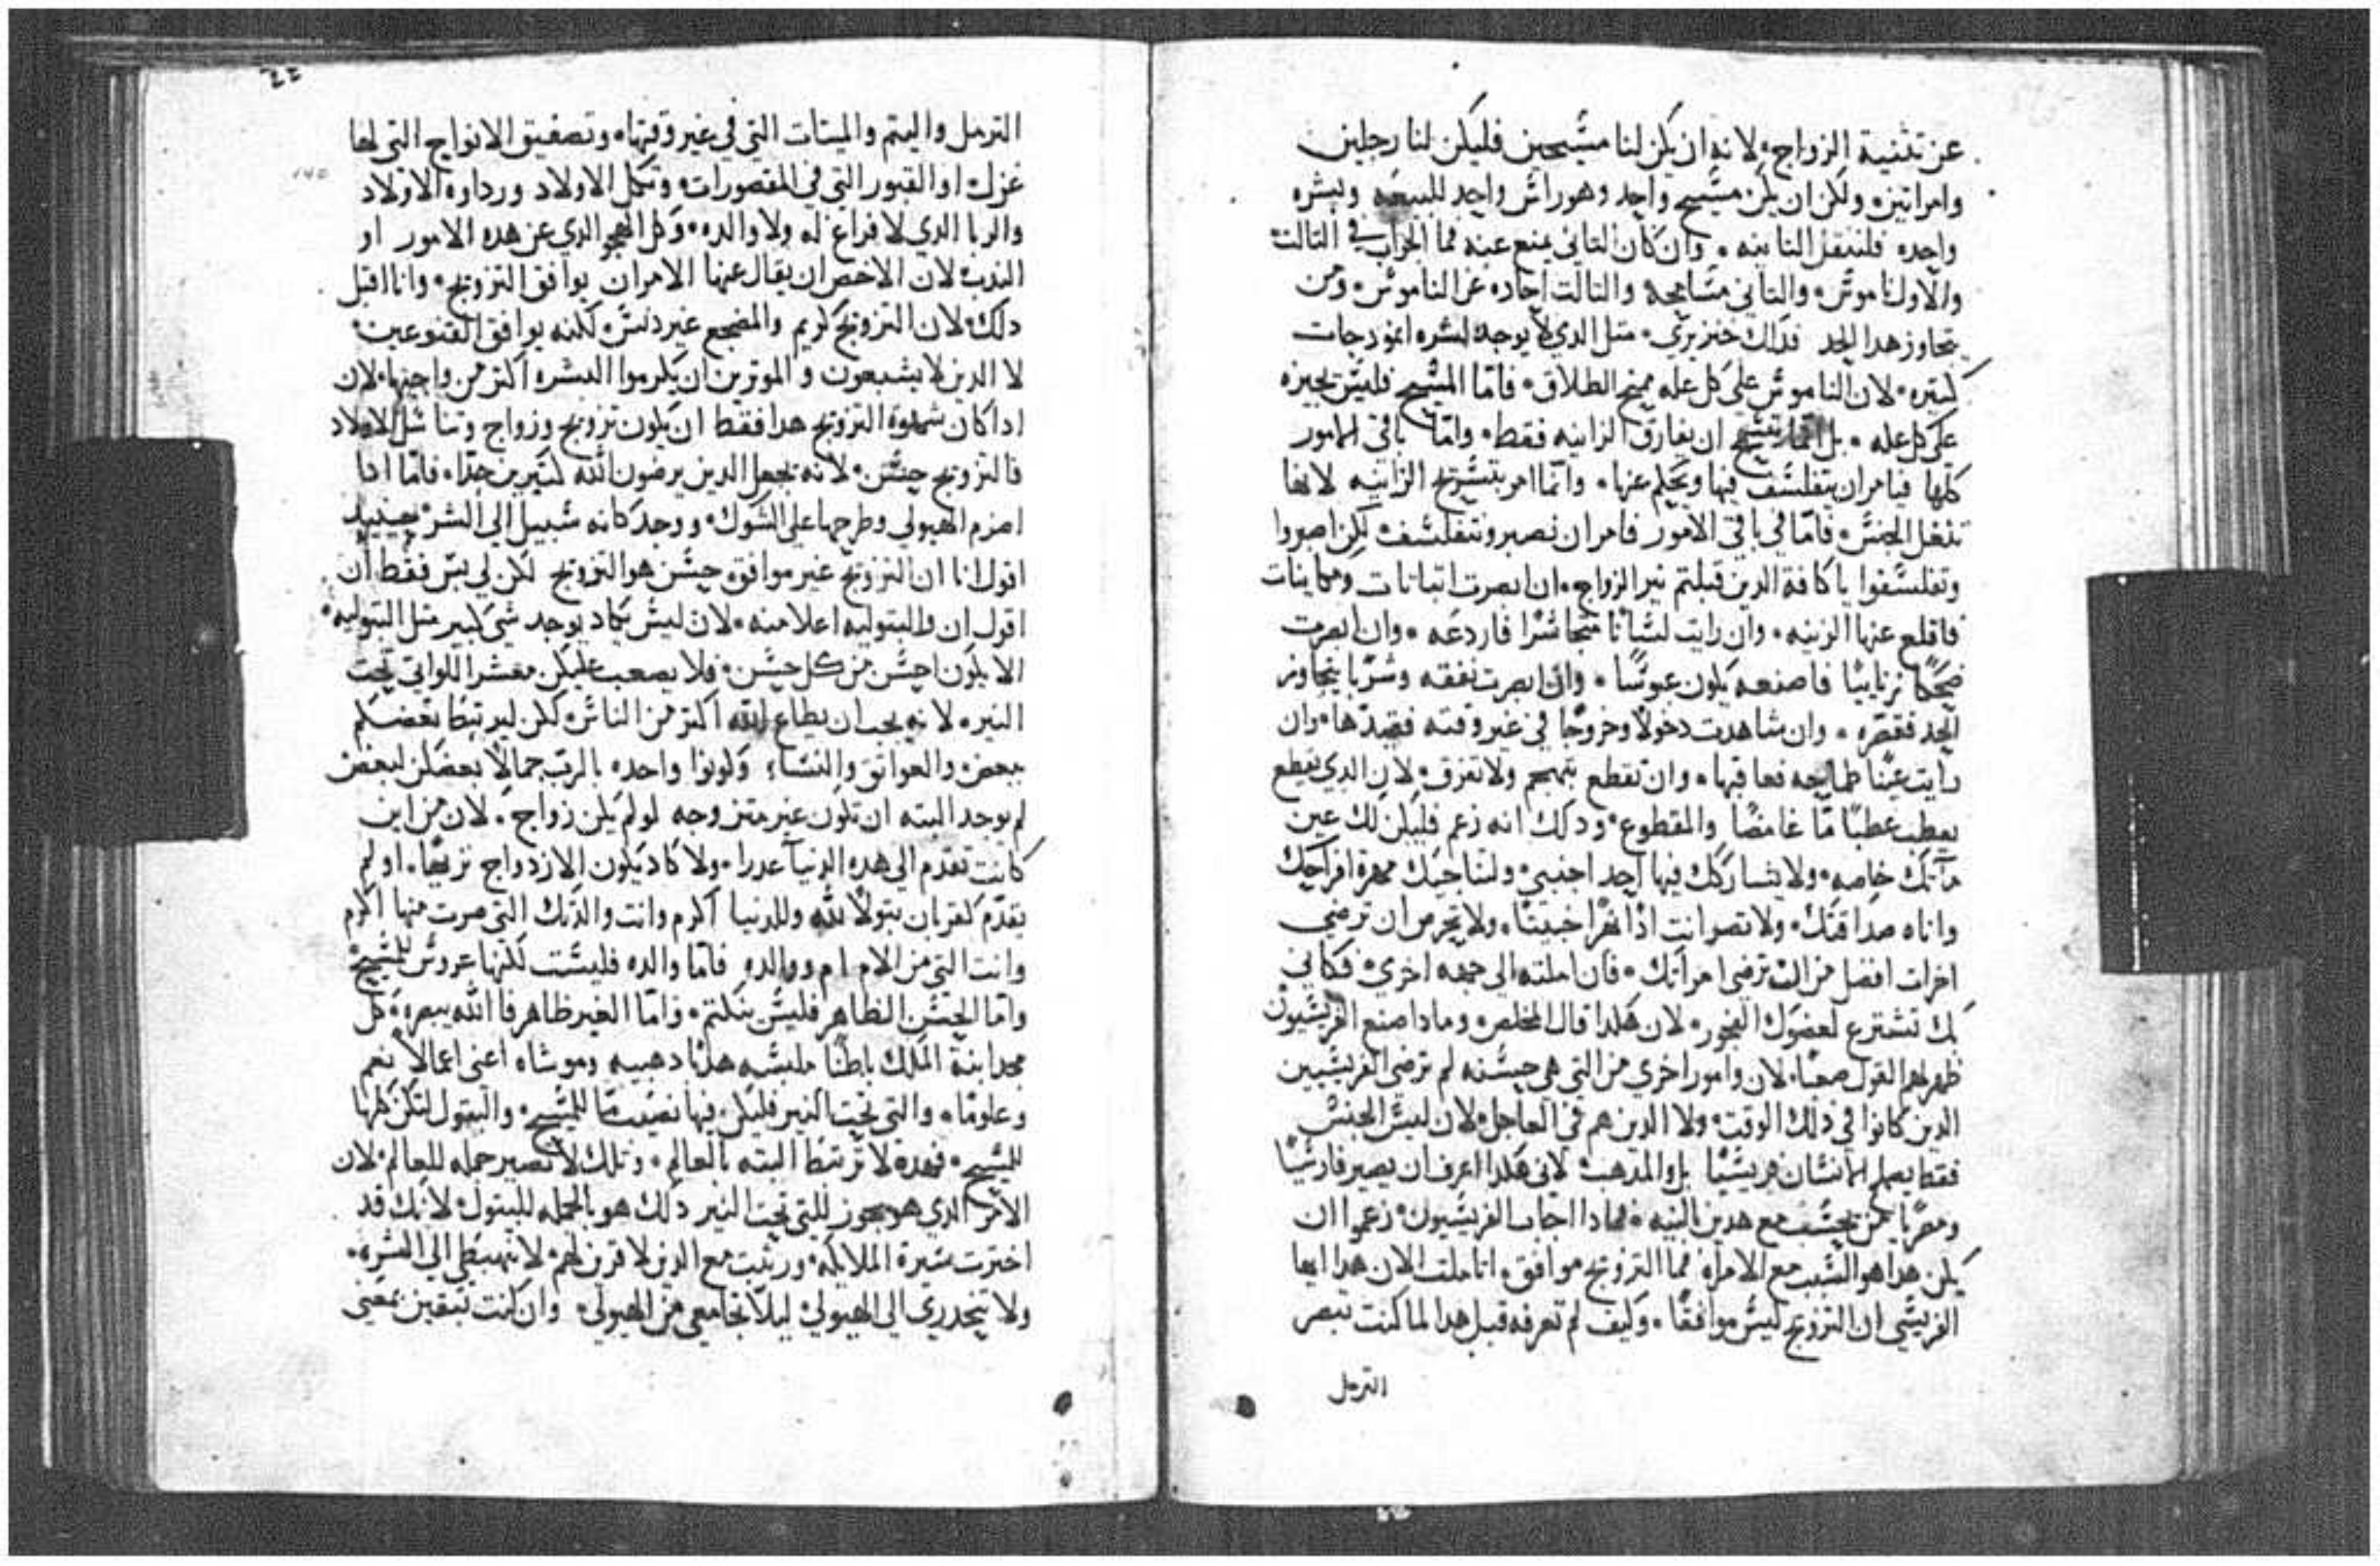 عن تثنية الزواج۰ لانه ان يكن لنا مسيحين فليكن لنا رجلين
وامراتين۰ ولكن ان يكن مسيح واحد وهو راس واحد للبيعه وبشره
واحده فلننقل الثانيه ۰ وان كان الثاني يمنع عنه فما الجواب في الثالث
والاول ناموس۰ والثاني مسامحه والثالث احاده عن الناموس۰ ومن
تجاوز هدا الحد فداك خنزيري۰ مثل الدي لا يوجد لشره انمودجات
كثيره۰ لان الناموس على كل عله يمنح الطلاق۰ فامّا المسيح فليس يجيزه
على كل عله ۰ بل انما ان يفارق الزانيه فقط۰ وامّا باقي الامور
كلها فيامر ان يتفلسف فيها ويحلم عنها۰ وانما امر بتسريح الزانيه لانها
تنغل الجنس۰ فامّا في باقي الامور فامر ان نصبر ونتفلسف۰ لكن اصبروا
وتفلسفوا يا كافة الدين قبلتم نير الزواج۰ ان ابصرت
فاقلع عنها الزينه۰ وان رايت لسانًا متجاسرًا فاردعه ۰ وان ابصرت
ضحكًا زنائيًا فاصنعه يكون عبوسًا ۰ وان ابصرت نفقه وشربًا يتجاوز
الحد فقصّره ۰ وان شاهدت دخولًا وخروجًا في غير وقته فقيدها۰ وان
رايت عينًا طامحه فعاقبها۰ وان تقطع بتهجم ولا تفرق۰ لان الدي يقطع
يعطب عطبًا مّا غامضًا والمقطوع۰ ودلك انه زعم فليكن لك عين
مآئك خاصه۰ ولا يشاركك فيها احد اجنبي۰ ولتناجيك مهرة افراحك
واناه صداقتك۰ ولا تصر انت ادًا نهرًا خبيثًا۰ ولا تحرص ان ترضي
اخرات افضل من ان ترضي امراتك۰ فان املته الى جهه اخري۰ فكاني
بك تشترع لعضوك الفجور۰ لان هكدا قال المخلص۰ ومادا صنع الفريسيون
ظهر لهم القول صعبًا۰ لان وامور اخري من التي هي حسنه لم ترضي الفريسيين
الدين كانوا في دلك الوقت۰ ولا الدين هم في العاجل۰ لان ليس الجنس
فقط يصير الانسان فريسيًا بل والمدهب۰ لاني هكدا اعرف ان يصير فارسيًا
ومصريًا من يحسب مع هدين النيه۰ فمادا اجاب الفريسيون۰ زعموا ان
يكن هدا هو السبب مع الامراه فما التزويج موافق۰ اتاملت الان هدا ايها
الفريسي ان التزويج ليس موافقًا ۰ وكيف لم تعرفه قبل هدا لما كنت تبصر
الترمل
٢٢
الترمل واليتم والميتات التي في غير وقتها۰ وتصفيق الانواح التي لها
عزك او القبور التي في المقصورات۰ وثكل الاولاد ورداوه الاولاد
والربا الدي لا فراغ له ولا والده۰ وكل الهجو الدي عن هده الامور او
الندب۰ لان الاخص ان يقال عنها الامران يوافق التزويج۰ وانا اقبل
دلك۰ لان التزويج كريم والمضجع غير دنس۰ لكنه يوافق القنوعين۰
لا الدين لا يشبعون والموثرين ان يكرموا البشره اكثر من واجبها۰ لان
ادا كان شهوة التزويج هدا فقط ان يكون تزويج وزواج وتناسل الاولاد
فالتزويج حسن۰ لانه يجعل الدين يرضون الله كثيرين جدًا۰ فامّا ادا
اضرم الهيولي وطرحها على الشوك۰ ووجد كانه سبيل الى الشر حينيد
اقول انا ان التزويج غير موافق۰ حسن هو التزويج لكن لي بس فقط ان
اقول ان والبتوليه اعلا منه۰ لان ليس يكاد يوجد شي كبير مثل البتوليه۰
الا يكون احسن من كل حسن۰ فلا يصعب عليكن معشر اللواتي تحت
النير۰ لانه يجب ان يطاع الله اكثر من الناس۰ لكن ليرتبط بعضكم
ببعض۰ والعواتق والنساء وكونوا واحده بالرب جمالًا بعضكن لبعض
لم يوجد البته ان تكون غير متزوجه لو لم يكن زواج ۰ لان من اين
كانت تقدم الى هده الدنيا عدرا۰ ولا كاد يكون الازدواج نزيهًا۰ او لم
يقدّم كقربان بتولًا لله وللدنيا اكرم وانت والدتك التي صرت منها اكرم
وانت التي من الام ام ووالده فامّا والده فليست لكنها عروس للمسيح
وامّا الحسن الظاهر فليس ينكتم۰ وامّا الغير ظاهر فالله يبصره۰ كل
مجد ابنة الملك باطنًا ملبسه هدبًا دهبيه وموشاه اعني اعمالًا نعم
وعلومًا۰ والتي تحت النير فليكن فيها نصيب مّا للمسيح۰ والبتول لتكن كلها
للمسيح۰ فهده لا ترتبط البته بالعالم۰ وتلك لا تصير جمله للعالم۰ لان
الامر الدي هو يجوز للتي تحت النير دلك هو بالجمله للبتول۰ لانك قد
اخترت سيرة الملايكه۰ ورتبت مع الدين لا قرين لهم۰ لا تهبطي الى البشره۰
ولا تنحدري الى الهيولي۰ ليلًا تجامعي من الهيولي۰ وان كنت تبقين بمعني